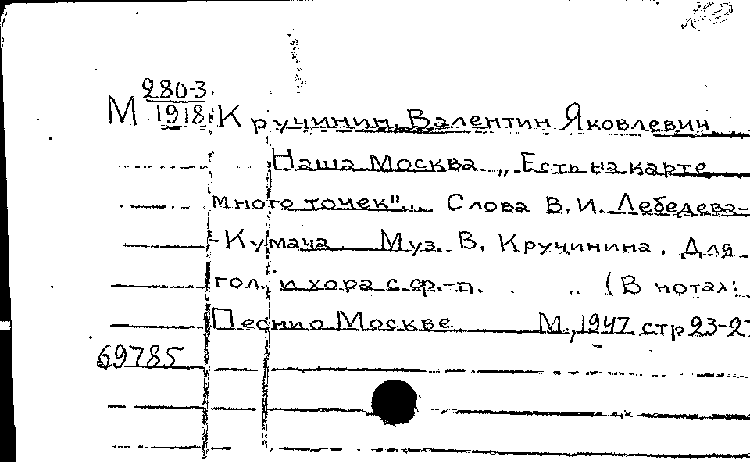 М 280-3
1918
Кручинин, Валентин Яковлевич
Наша Москва „Есть на карте
много точек"... Слова В. И. Лебедева-
-Кумача. Муз. В. Кручинина. Для
гол. и хора с ф.-п. (В нотах:
Песни о Москве М., 1947 стр 23-2
69785